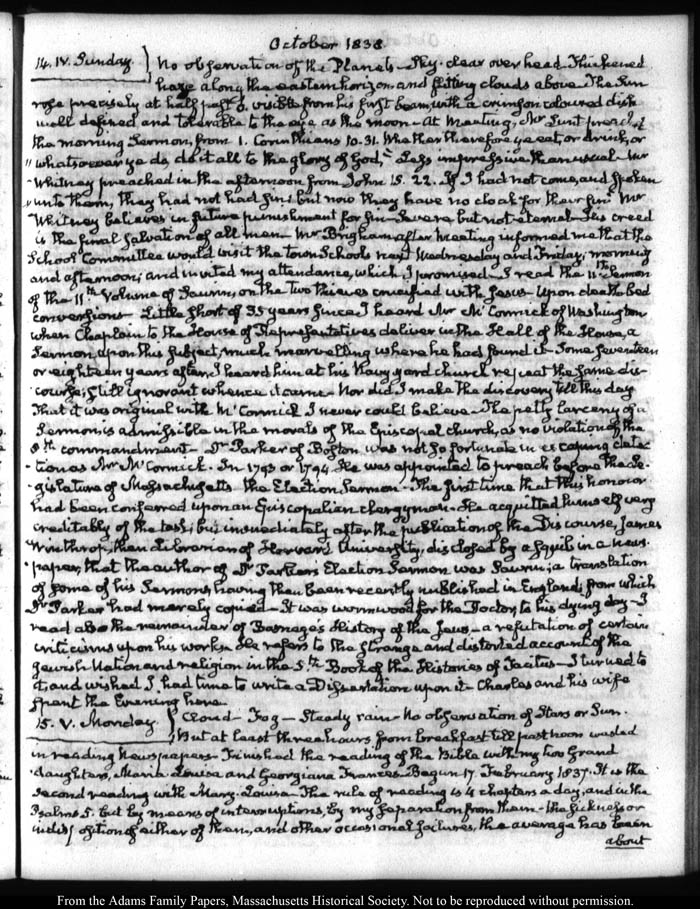 October 1838.
14. IV. Sunday. No observation of the Planets – Sky clear over head. Thickened
haze along the eastern horizon and flitting clouds above – The Sun
rose precisely at half past 6. visible from his first beam, with a crimson coloured disk
well defined and tolerable to the eye as the moon – At Meeting, Mr Lunt preach'd
the morning Sermon, from 1. Corinthians 10.31. Whether therefore ye eat, or drink, or
"whatsoever ye do, do it all to the glory of God," – Less impressive than usual – Mr
Whitney preached in the afternoon from John 15. 22. If I had not come, and spoken
"unto them, they had not had sin: but now they have no cloak for their sin. Mr
Whitney believes in future punishment for sin – severe but not eternal – His creed
is the final salvation of all men – Mr Brigham after Meeting informed me that the
School Committee would visit the town Schools next Wednesday and Friday, morning
and afternoon; and invited my attendance, which I promised – I read the 11th Sermon
of the 11th Volume of Saurin, on the two thieves crucified with Jesus – Upon death bed
conversions – Little short of 35 years since I heard Mr McCormick of Washington
when Chaplain to the House of Representatives deliver in the Hall of the House, a
Sermon, upon this subject, much marvelling where he had found it – Some seventeen
or eighteen years after, I heard him at his Navy yard church repeat the same dis-
course; still ignorant whence it came – Nor did I make the discovery till this day
That it was original with McCormick I never could believe – The petty larceny of a
Sermon is admissible in the morals of the Episcopal church, as no violation of the
8th commandment – Dr Parker of Boston was not so fortunate in escaping detec-
-tion as Mr McCormick – In 1793 or 1794. He was appointed to preach before the Le-
-gislature of Massachusetts the Election Sermon – The first time that this honour
had been conferred upon an Episcopalian clergyman – He acquitted himself very
creditably of the task; but immediately after the publication of the Discourse, James
Winthrop, then Librarian of Harvard University, disclosed by a squib in a news-
-paper, that the author of Dr Parker's Election Sermon was Saurin; a translation
of some of his Sermons, having then been recently published in England; from which
Dr Parker had merely copied – It was wormwood for the Doctor, to his dying day – I
read also the remainder of Basnage's History of the Jews – a refutation of certain
criticisms upon his work. He refers to the strange and distorted account of the
Jewish Nation and religion in the 5th Book of the Histories of Tacitus – I turned to
it, and wished I had time to write a Dissertation upon it – Charles and his wife
spent the Evening here.
15. V. Monday. Cloud – Fog – Steady rain – No observation of Stars or Sun.
But at least three hours from breakfast till past noon wasted
in reading Newspapers – Finished the reading of the Bible with my two Grand
daughters, Maria Louisa and Georgiana Frances – Begun 17. February 1837. It is the
second reading with Mary-Louisa – The rule of reading is 4 chapters a day, and in the
Psalms 5. but by means of interruptions, by my separation from them – the sickness or
indisposition of either of them, and other occasional failures, the average has been
about
From the Adams Family Papers, Massachusetts Historical Society. Not to be reproduced without permission.